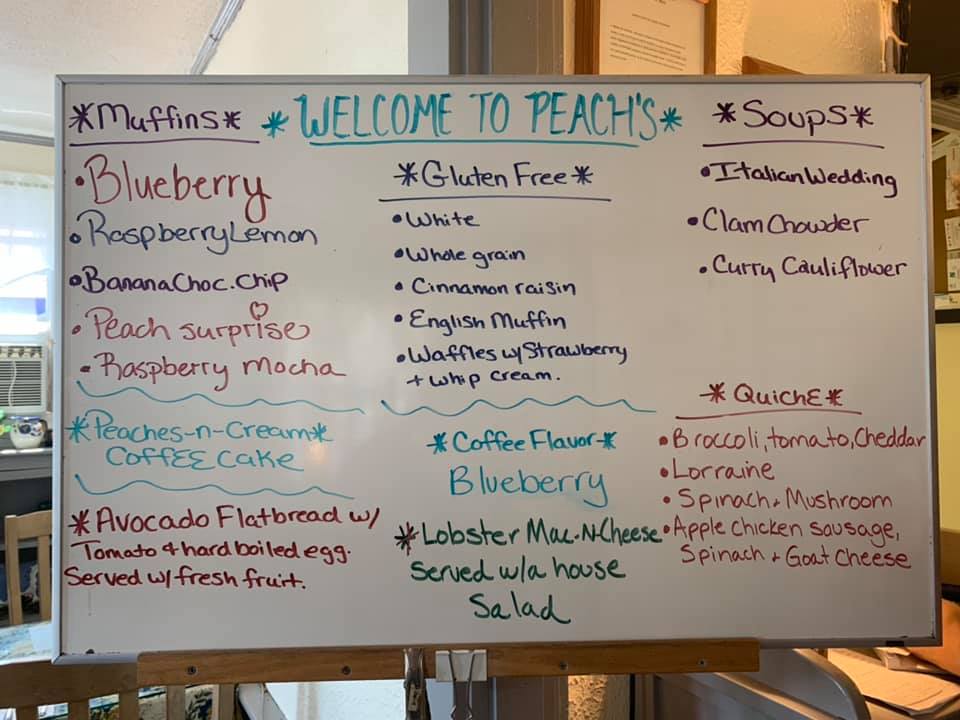 *Muffins*
• Blueberry
• Raspberry Lemon
• Banana Choc. Chip
• Peach surprise
• Raspberry mocha
*Peaches-n-Cream*
COFFEE CAKE
*Avocado Flatbread w/
Tomato + hard boiled egg.
Served w/ fresh fruit.
* WELCOME TO PEACH'S *
*Gluten Free*
• White
• Whole grain
• Cinnamon raisin
• English Muffin
• Waffles w/ Strawberry
+ whip cream.
*Coffee Flavor*
Blueberry
*Lobster Mac-N-Cheese
Served w/a house
Salad
*Soups*
• Italian Wedding
• Clam Chowder
• Curry Cauliflower
*QuichE*
• Broccoli, tomato, Cheddar
• Lorraine
• Spinach + Mushroom
• Apple chicken sausage,
Spinach + Goat Cheese